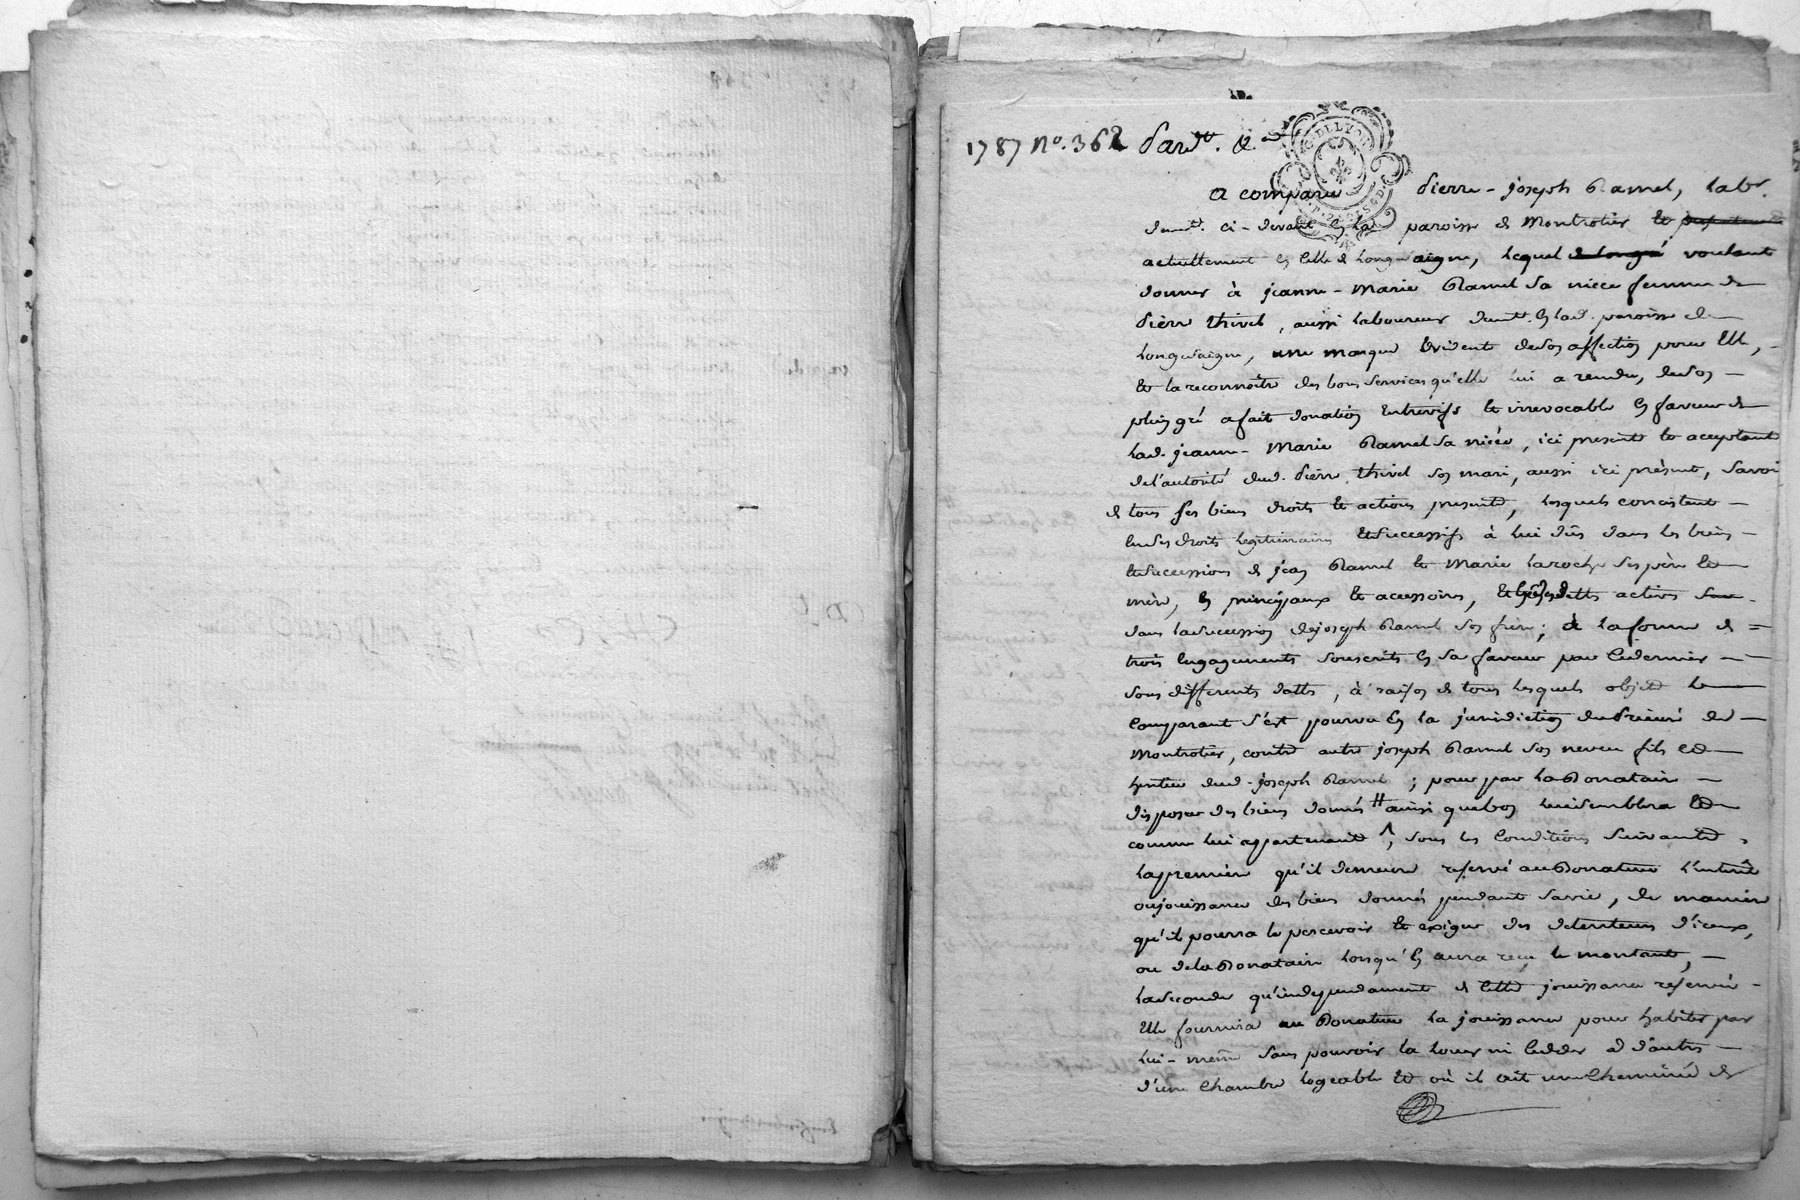 1787 no. 362 Pardt. &a
a comparu pierre-joseph Ramel, labr.
demt. ci-devant en la paroisse de Montrotier et
actuellement en celle de Longesaigne, lequel voulant
donner à jeanne-Marie Ramel sa niece femme de
pierre thivel, aussi laboureur demt. en lad. paroisse de
Longesaigne, une marque evidente de son affection pour elle,
et la reconnoitre des bons services qu'elle lui a rendu, de son
plein gré a fait donation entrevifs et irrevocable en faveur de
lad. jeanne-Marie Ramel sa niéce, ici presente et acceptant
de l'autorité dud. pierre thivel son mari, aussi ici présent, savoir
de tous ses biens droits et actions presents, lesquels concistent
en des droits legitimaires et successifs à lui dûs dans les biens
et successions de jean Ramel et Marie Laroche ses père et
mère, en principaux et accessoires, et en dettes actives
dans la succession de joseph Ramel son frère; à la forme de
trois engagements souscrits en sa faveur par ce dernier
sous differents dattes, à raison de tous lesquels objets le
comparant s'est pourvu en la jurisdiction du Prieuré de
Montrotier, contre autre joseph Ramel son neveu fils et
heritier dud. joseph Ramel; pour par la Donataire
disposer des biens donnés # ainsi que bon lui semblera et
comme lui appartenants, sous les conditions suivantes.
la premiere qu'il demeure reservé au Donateur l'interêt
ou jouissance des biens donnés pendant sa vie, de maniere
qu'il pourra le percevoir et exiger des detenteurs d'iceux,
ou de la Donataire lorsqu'en aura reçu le montant,
la seconde qu'independament de cette jouissance reservée
elle fournira au Donateur la jouissance pour habiter par
lui-même sans pouvoir la louer ni ceder à d'autres
d'une chambre logeable et où il ait une cheminée de